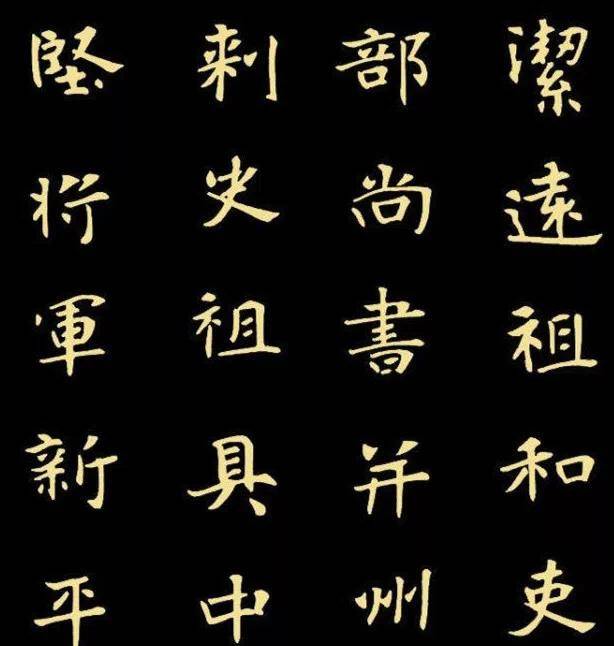 潔遠祖和吏
部尚書并州
刺史祖具中
堅将軍新平